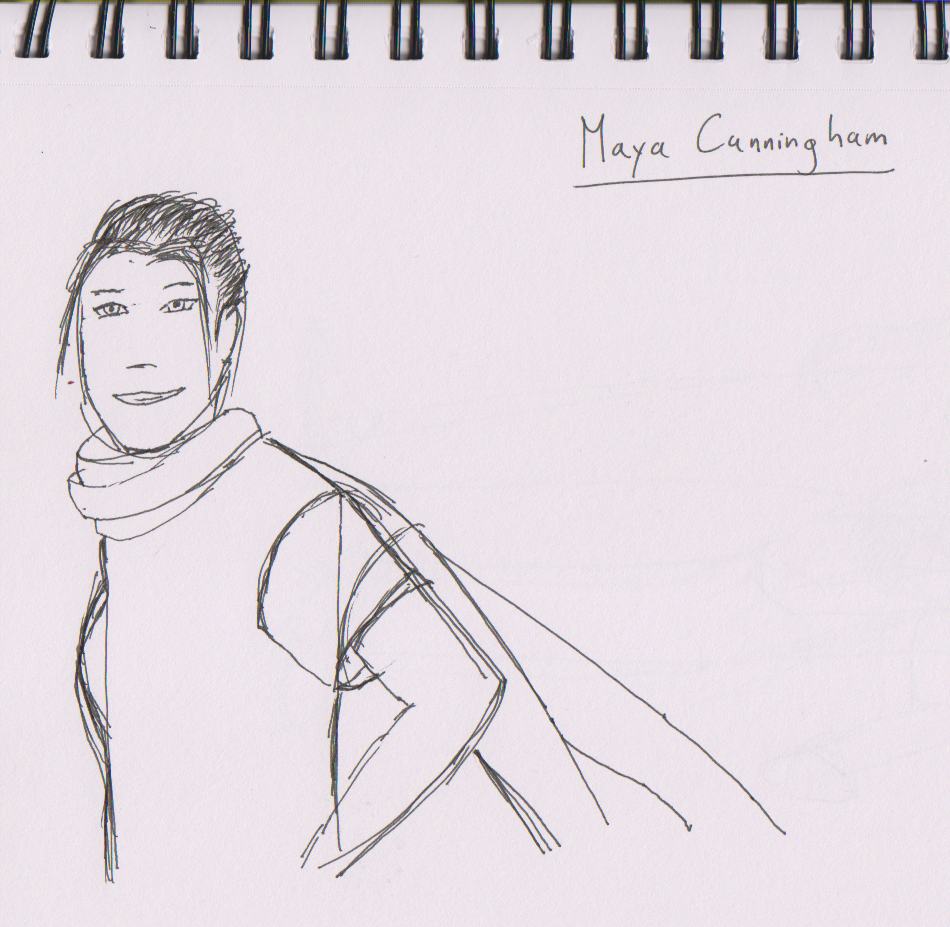 Maya Cunningham